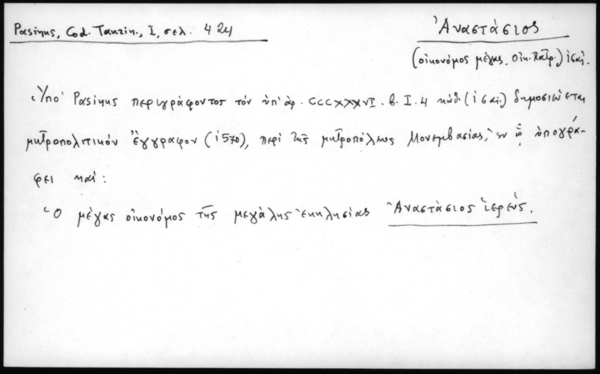 Pasinus, Cod. Taurin., I, σελ. 424
Ἀναστάσιος
(οἰκονόμος μέγας, Οἰκ. Πατρ.) ιςαί.
Ὑπό Pasinus περιγράφοντος τόν ὑπ' ἀρ. CCCXXXVI. b. I. 4 κώδ. (ιςαί.) δημοσιεύεται
μητροπολιτικόν ἔγγραφον (1570), περί τῆς μητροπόλεως Μονεμβασίας, ἐν ᾧ ὑπογρά-
φει καί:
Ὁ μέγας οἰκονόμος τῆς μεγάλης ἐκκλησίας Ἀναστάσιος ἱερεύς.